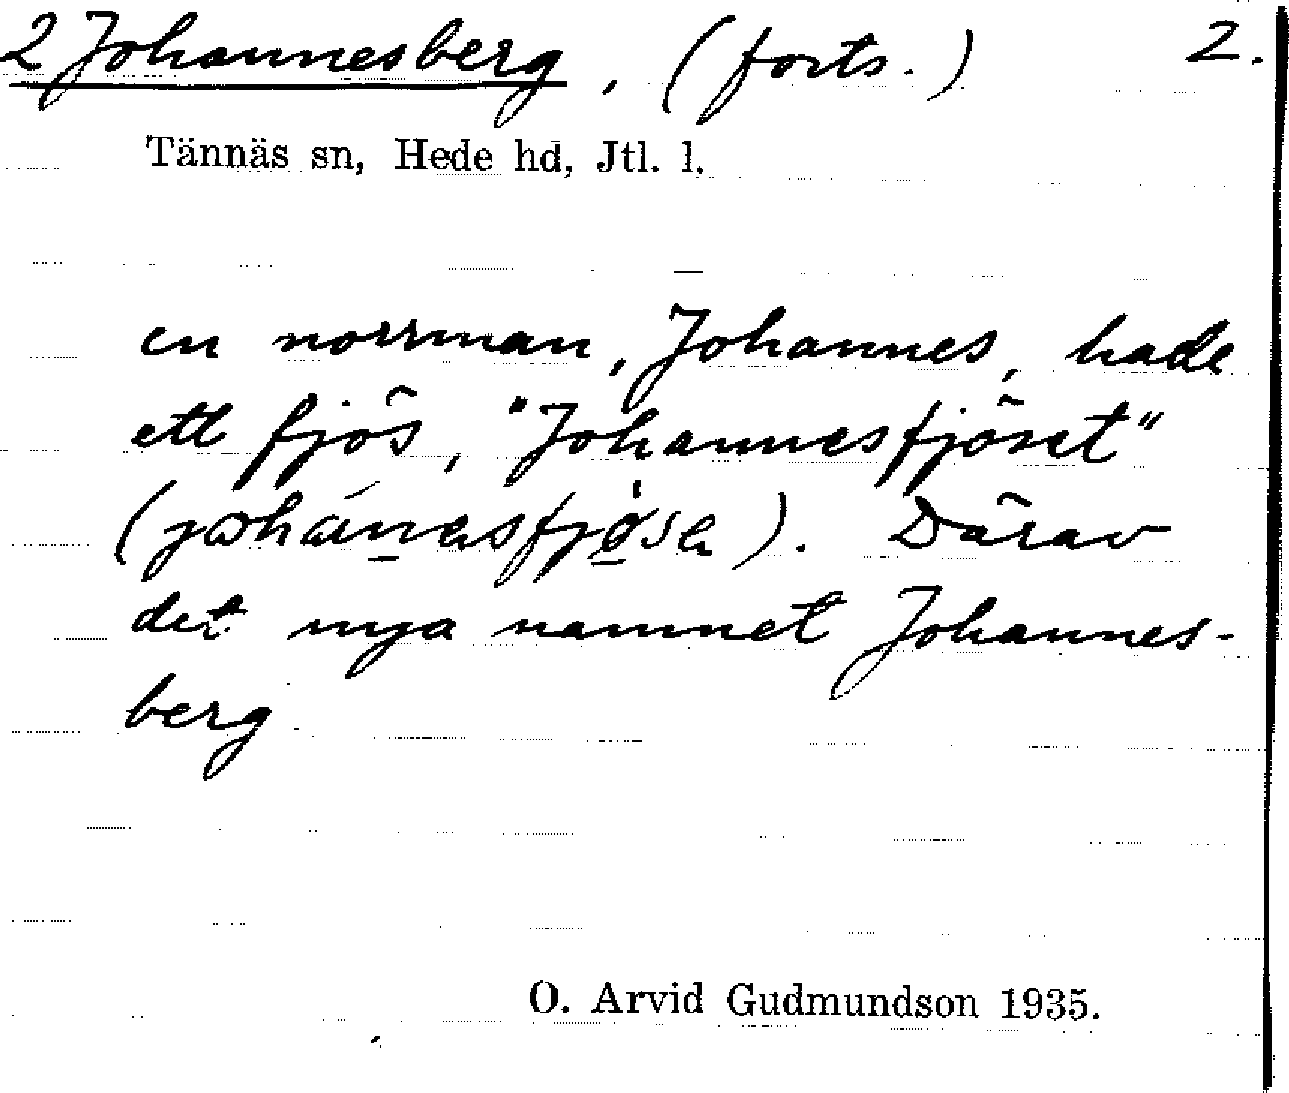 2 Johannesberg, (forts.) 2.
Tännäs sn, Hede hd, Jtl. l.
en norrman, Johannes, hade
ett fjös, "Johannesfjöset"
Därav
det nya namnet Johannes-
berg
O. Arvid Gudmundson 1935.